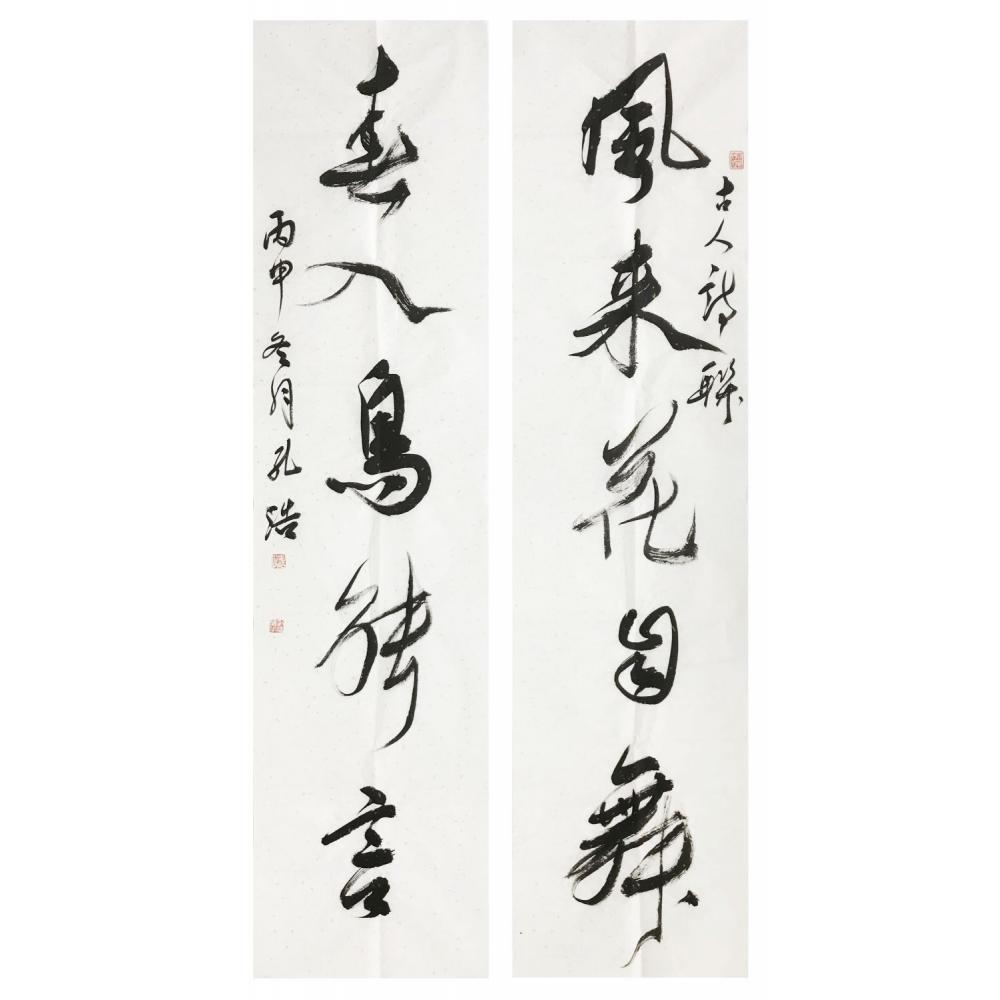 古人詩聯
風来花自舞
春入鳥能言
丙申冬月孔浩